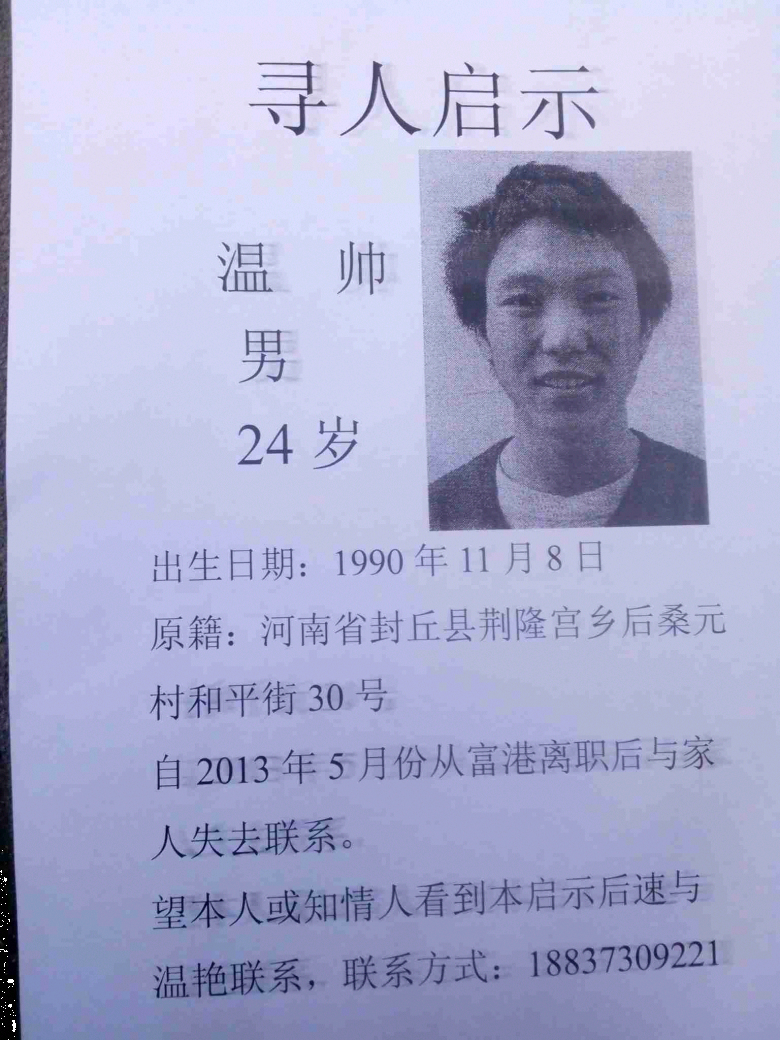 寻人启示
温 帅
男
24 岁
出生日期：1990 年 11 月 8 日
原籍：河南省封丘县荆隆宫乡后桑元
村和平街 30 号
自 2013 年 5 月份从富港离职后与家
人失去联系。
望本人或知情人看到本启示后速与
温艳联系，联系方式：18837309221